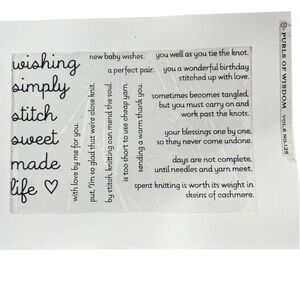 wishing
simply
stitch
sweet
made
life
new baby wishes.
a perfect pair.
you well as you tie the knot.
you a wonderful birthday
stitched up with love.
sometimes becomes tangled,
but you must carry on and
work past the knots.
your blessings one by one,
so they never come undone.
days are not complete,
until needles and yarn meet.
spent knitting is worth its weight in
skeins of cashmere.
with love by me for you.
put, "I'm so glad that we're close knit.
by stitch, knitting can mend the soul.
is too short to use cheap yarn.
sending a warm thank you.
PURLS OF WISDOM
VOL.6 NO.125